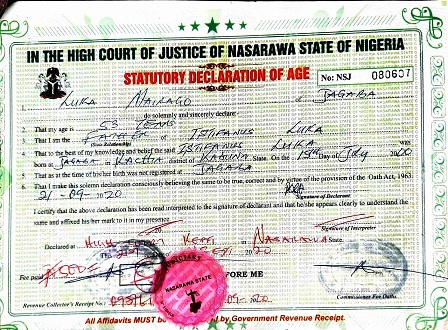 IN THE HIGH COURT OF JUSTICE OF NASARAWA STATE OF NIGERIA
STATUTORY DECLARATION OF AGE
No: NSJ 080607
1. LUKA MAIRAGO of JAGABA
do solemnly and sincerely declare:
2. That my age is 53 YEARS
3. That I am the FATHER of ISTIFANUS LUKA
(Gross Relationship)
4. That to the best of my knowledge and belief the said ISTIFANUS LUKA was
born at JAGABA in KACHIA district of KADUNA State. On the 15th Day of July 2000
5. That as at the time of his/her birth was not registered at JAGABA
6. That I make this solemn declaration consciously believing the same to be true, correct and by virtue of the provision of the Oath Act, 1963
21-09-2020
Signature of Declarant
I certify that the above declaration has been read interpreted to the signature of declarant and that he/she appears clearly to understand the
same and affixed his her mark to it in my presence
Signature of Interpreter
Declared at HIGH COURT KEFFI in NASARAWA State.
The 21st 20 20
Fee paid BEFORE ME
NASARAWA STATE
Revenue Collector's Receipt No. 09-2020 Commissioner For Oaths
All Affidavits MUST be by Government Revenue Receipt.